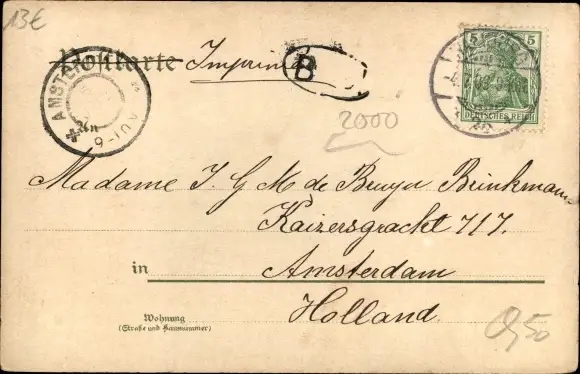 13€
Postkarte Imprimé
AMSTERDAM
B
5
DEUTSCHES REICH
2000
An
Madame J. G. M. de Bruyn Brinkmann
Kaizersgracht 717.
in Amsterdam
Holland.
Wohnung
(Straße und Hausnummer)